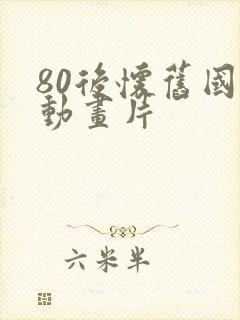 80後懷舊國
動畫片
六米半